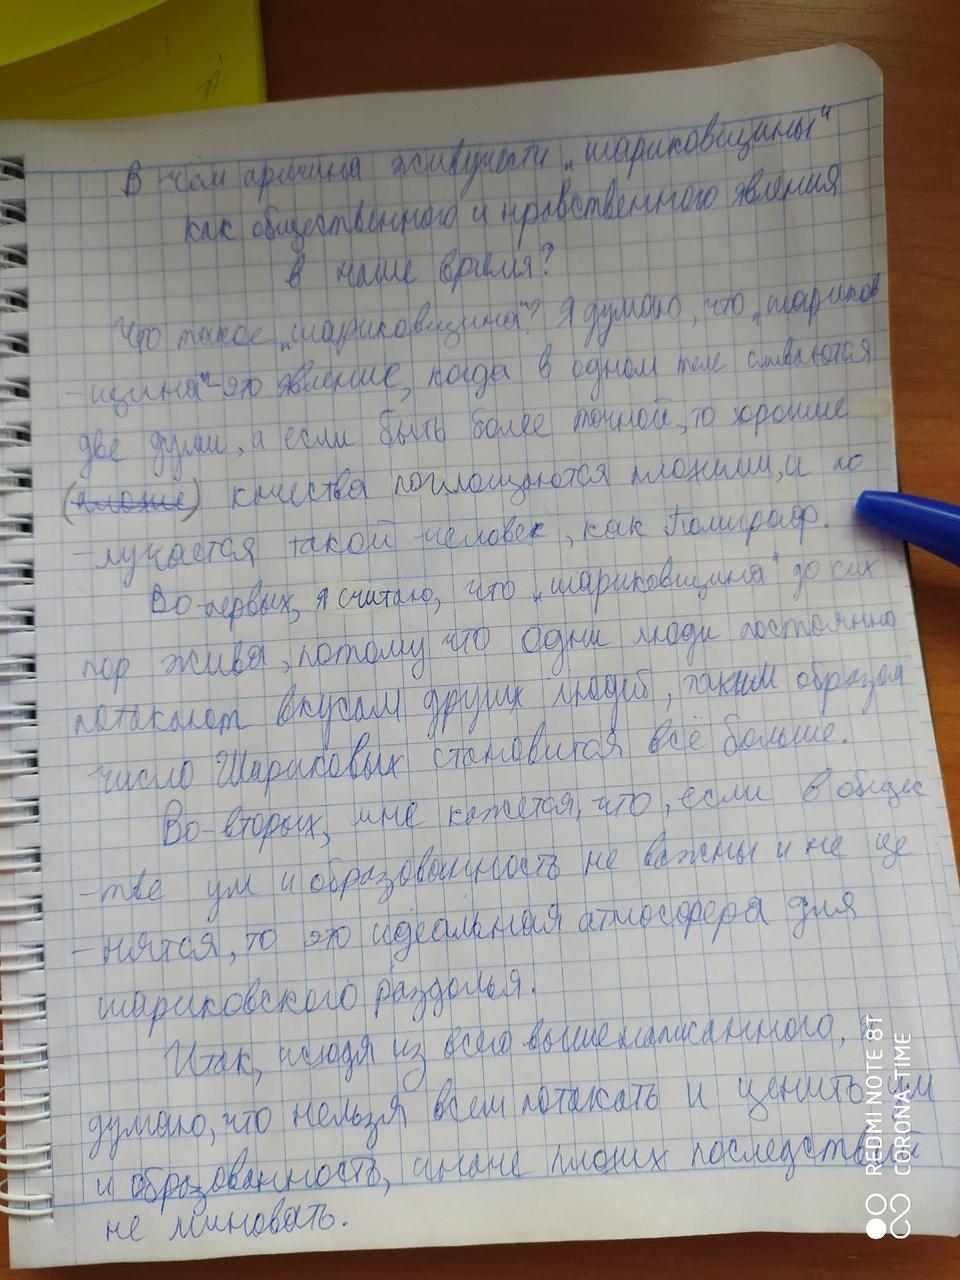 В чём причина живучести „шариковщины"
как общественного и нравственного явления
в наше время?
Что такое „шариковщина"? Я думаю, что „шариков
-щина"-это явление, когда в одном теле сливаются
две души, а если быть более точной, то хорошие
(плохие) качества поглощаются плохими, и по
-лучается такой человек, как Полиграф.
Во-первых, я считаю, что „шариковщина" до сих
пор жива, потому что одни люди постоянно
потакают вкусам других людей, таким образом
число Шариковых становится всё больше.
Во-вторых, мне кажется, что, если в общес
-тве ум и образованность не важны и не це
-нятся, то это идеальная атмосфера для
шариковского раздолья.
Итак, исходя из всего вышенаписанного, я
думаю, что нельзя всем потакать и ценить ум
и образованность, иначе плохих последствий
не миновать.
REDMI NOTE 8T
CORONATIME